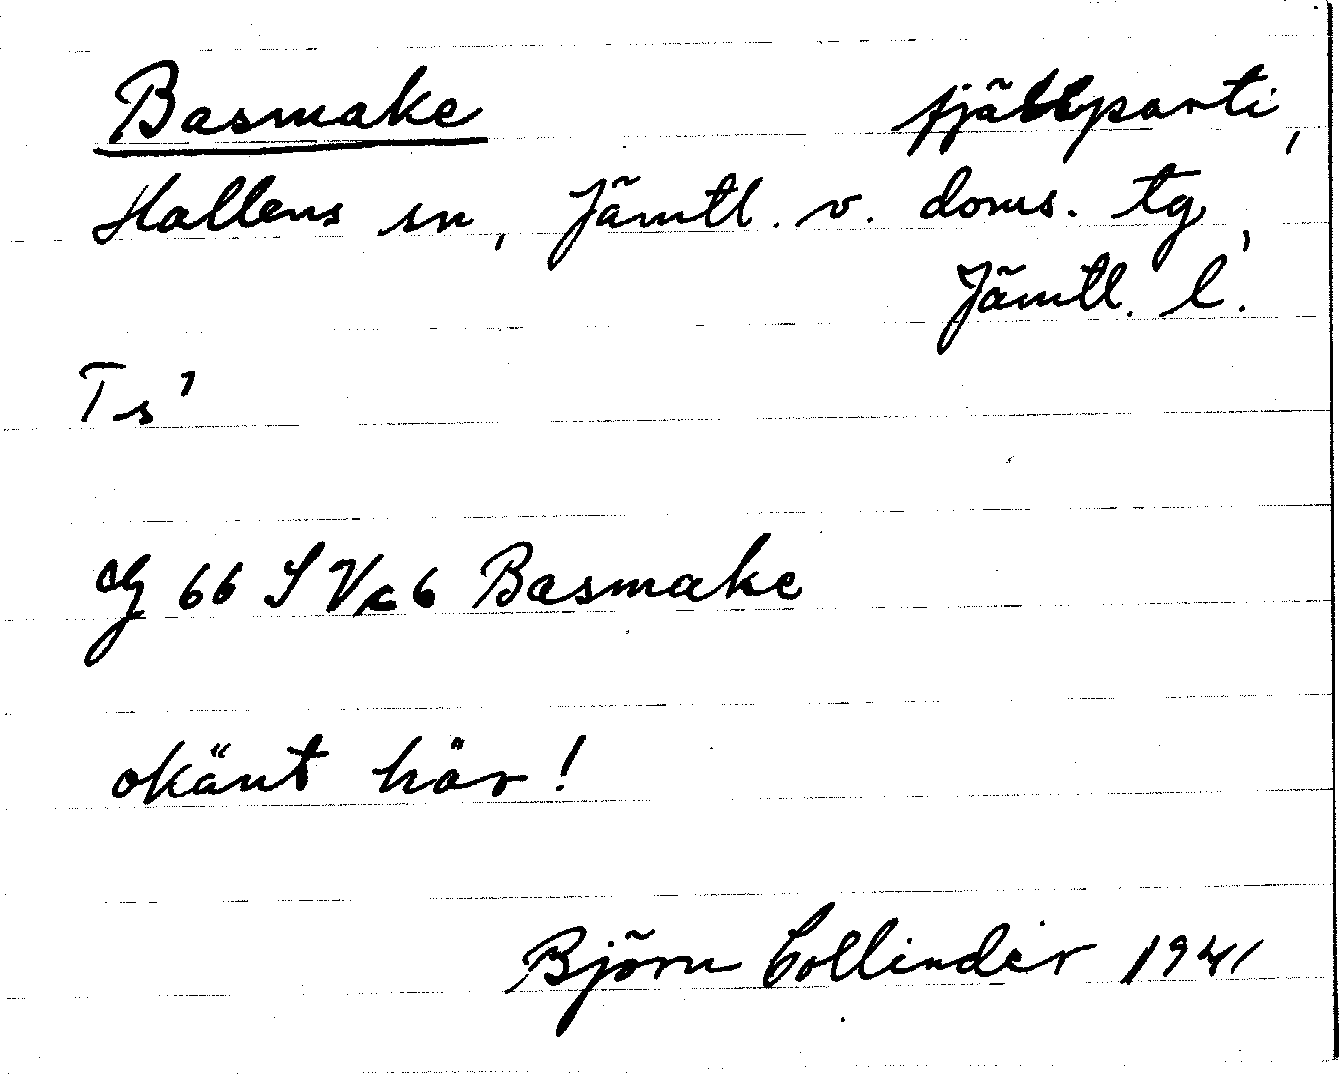 Basmake fjällparti,
Hallens sn, Jämtl. v. doms. tg,
Jämtl. l.
Ts'
G 66 S V c 6 Basmake
okänt här!
Björn Collinder 1941